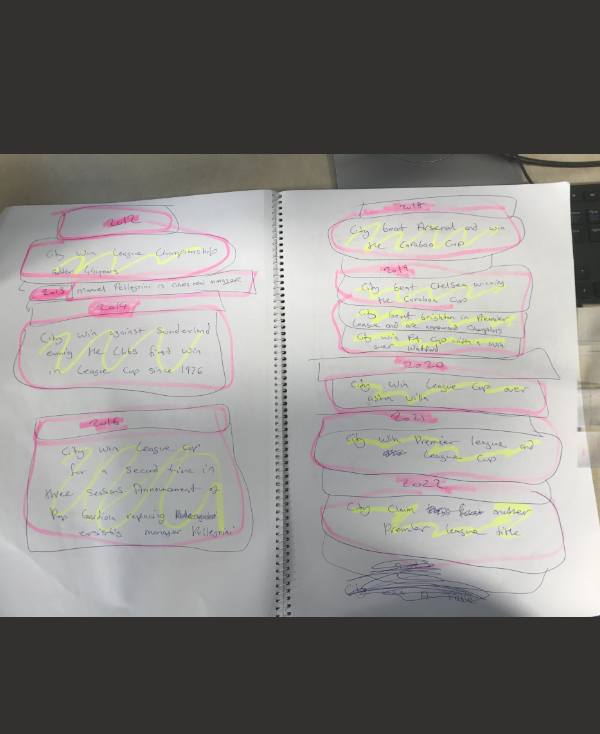 2012
City Win League Championship
after 44 years
2013 Manuel Pellegrini is Citys new manager
2014
City win against Sunderland
earning the Clubs first win
in League Cup since 1976
2016
City win League Cup
for a second time in
three seasons. Announcement of
Pep Guardiola replacing
existing manager Pellegrini
2018
City beat Arsenal and win
the Carabao Cup
2019
City beat Chelsea winning
the Carabao Cup
City beat brighton in Premier
League and are announced Champions
City win FA Cup with a win
over Watford
2020
City Win League Cup over
aston Villa
2021
City win Premier league and
League Cup
2022
City Claim another
Premier league title
City